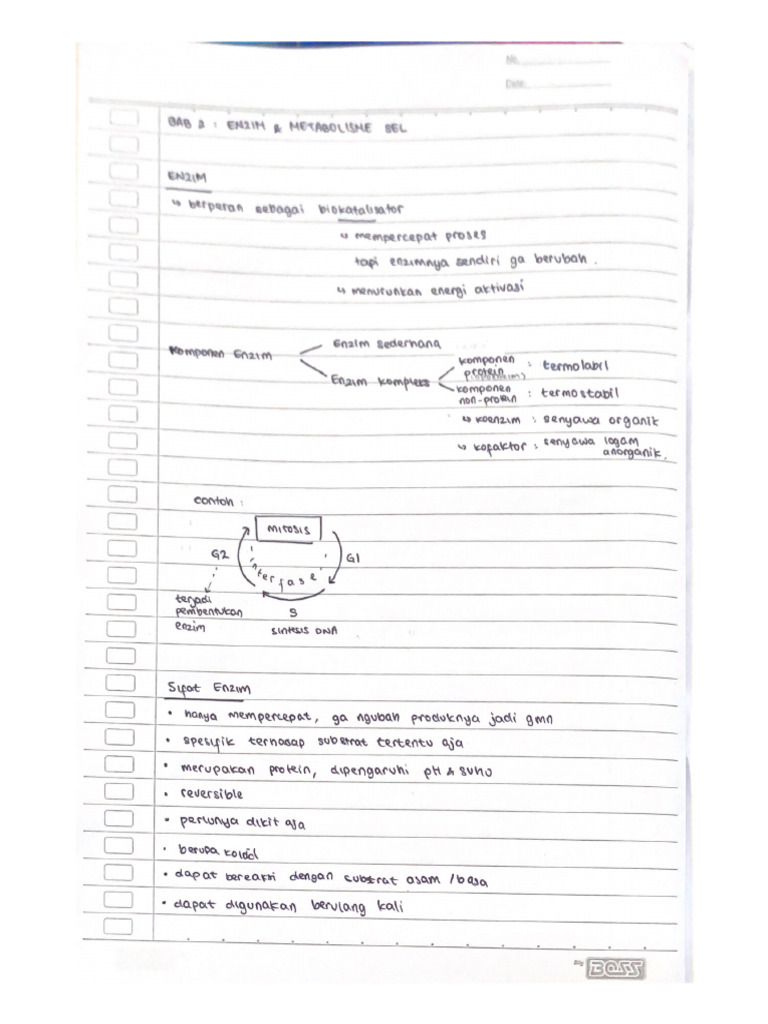 No.
Date.
BAB 2 : ENZIM & METABOLISME SEL
ENZIM
↳ berperan sebagai biokatalisator
↳ mempercepat proses
tapi enzimnya sendiri ga berubah.
↳ menurunkan energi aktivasi
Komponen Enzim
Enzim sederhana
Enzim kompleks
komponen protein : termolabil
komponen non-protein : termostabil
↳ koenzim : senyawa organik
↳ kofaktor : senyawa logam anorganik.
contoh :
MITOSIS
G2
G1
interfase
S
SINTESIS DNA
terjadi
pembentukan
enzim
Sifat Enzim
• hanya mempercepat, ga ngubah produknya jadi gmn
• spesifik terhadap substrat tertentu aja
• merupakan protein, dipengaruhi pH & suhu
• reversible
• perlunya dikit aja
• berupa koloid
• dapat bereaksi dengan substrat asam / basa
• dapat digunakan berulang kali
BOSS